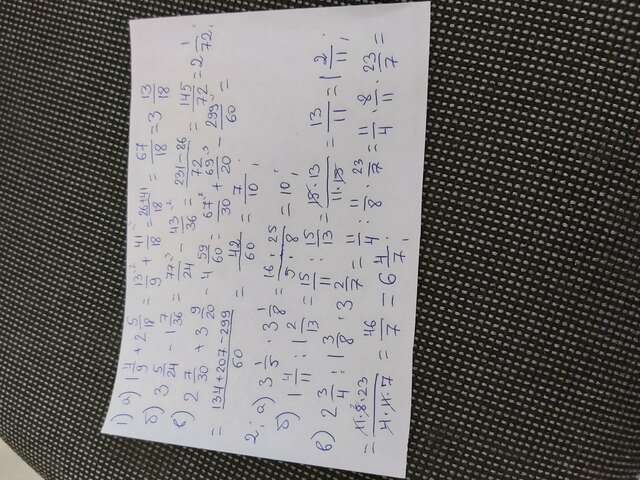 1) а) 1 4/9 + 2 5/18 = 13/9 + 41/18 = 26+41/18 = 67/18 = 3 13/18
б) 3 5/24 - 1 7/36 = 77/24 - 43/36 = 231-86/72 = 145/72 = 2 1/72;
в) 2 7/30 + 3 9/20 - 4 59/60 = 67/30 + 69/20 - 299/60 =
= 134+207-299/60 = 42/60 = 7/10;
2; а) 3 1/5 · 3 1/8 = 16·25/5·8 = 10;
б) 1 4/11 : 1 2/13 = 15/11 : 15/13 = 15·13/11·15 = 13/11 = 1 2/11;
в) 2 3/4 : 1 3/8 · 3 2/7 = 11/4 : 11/8 · 23/7 = 11/4 · 8/11 · 23/7 =
= 11·8·23/4·11·7 = 46/7 = 6 4/7;